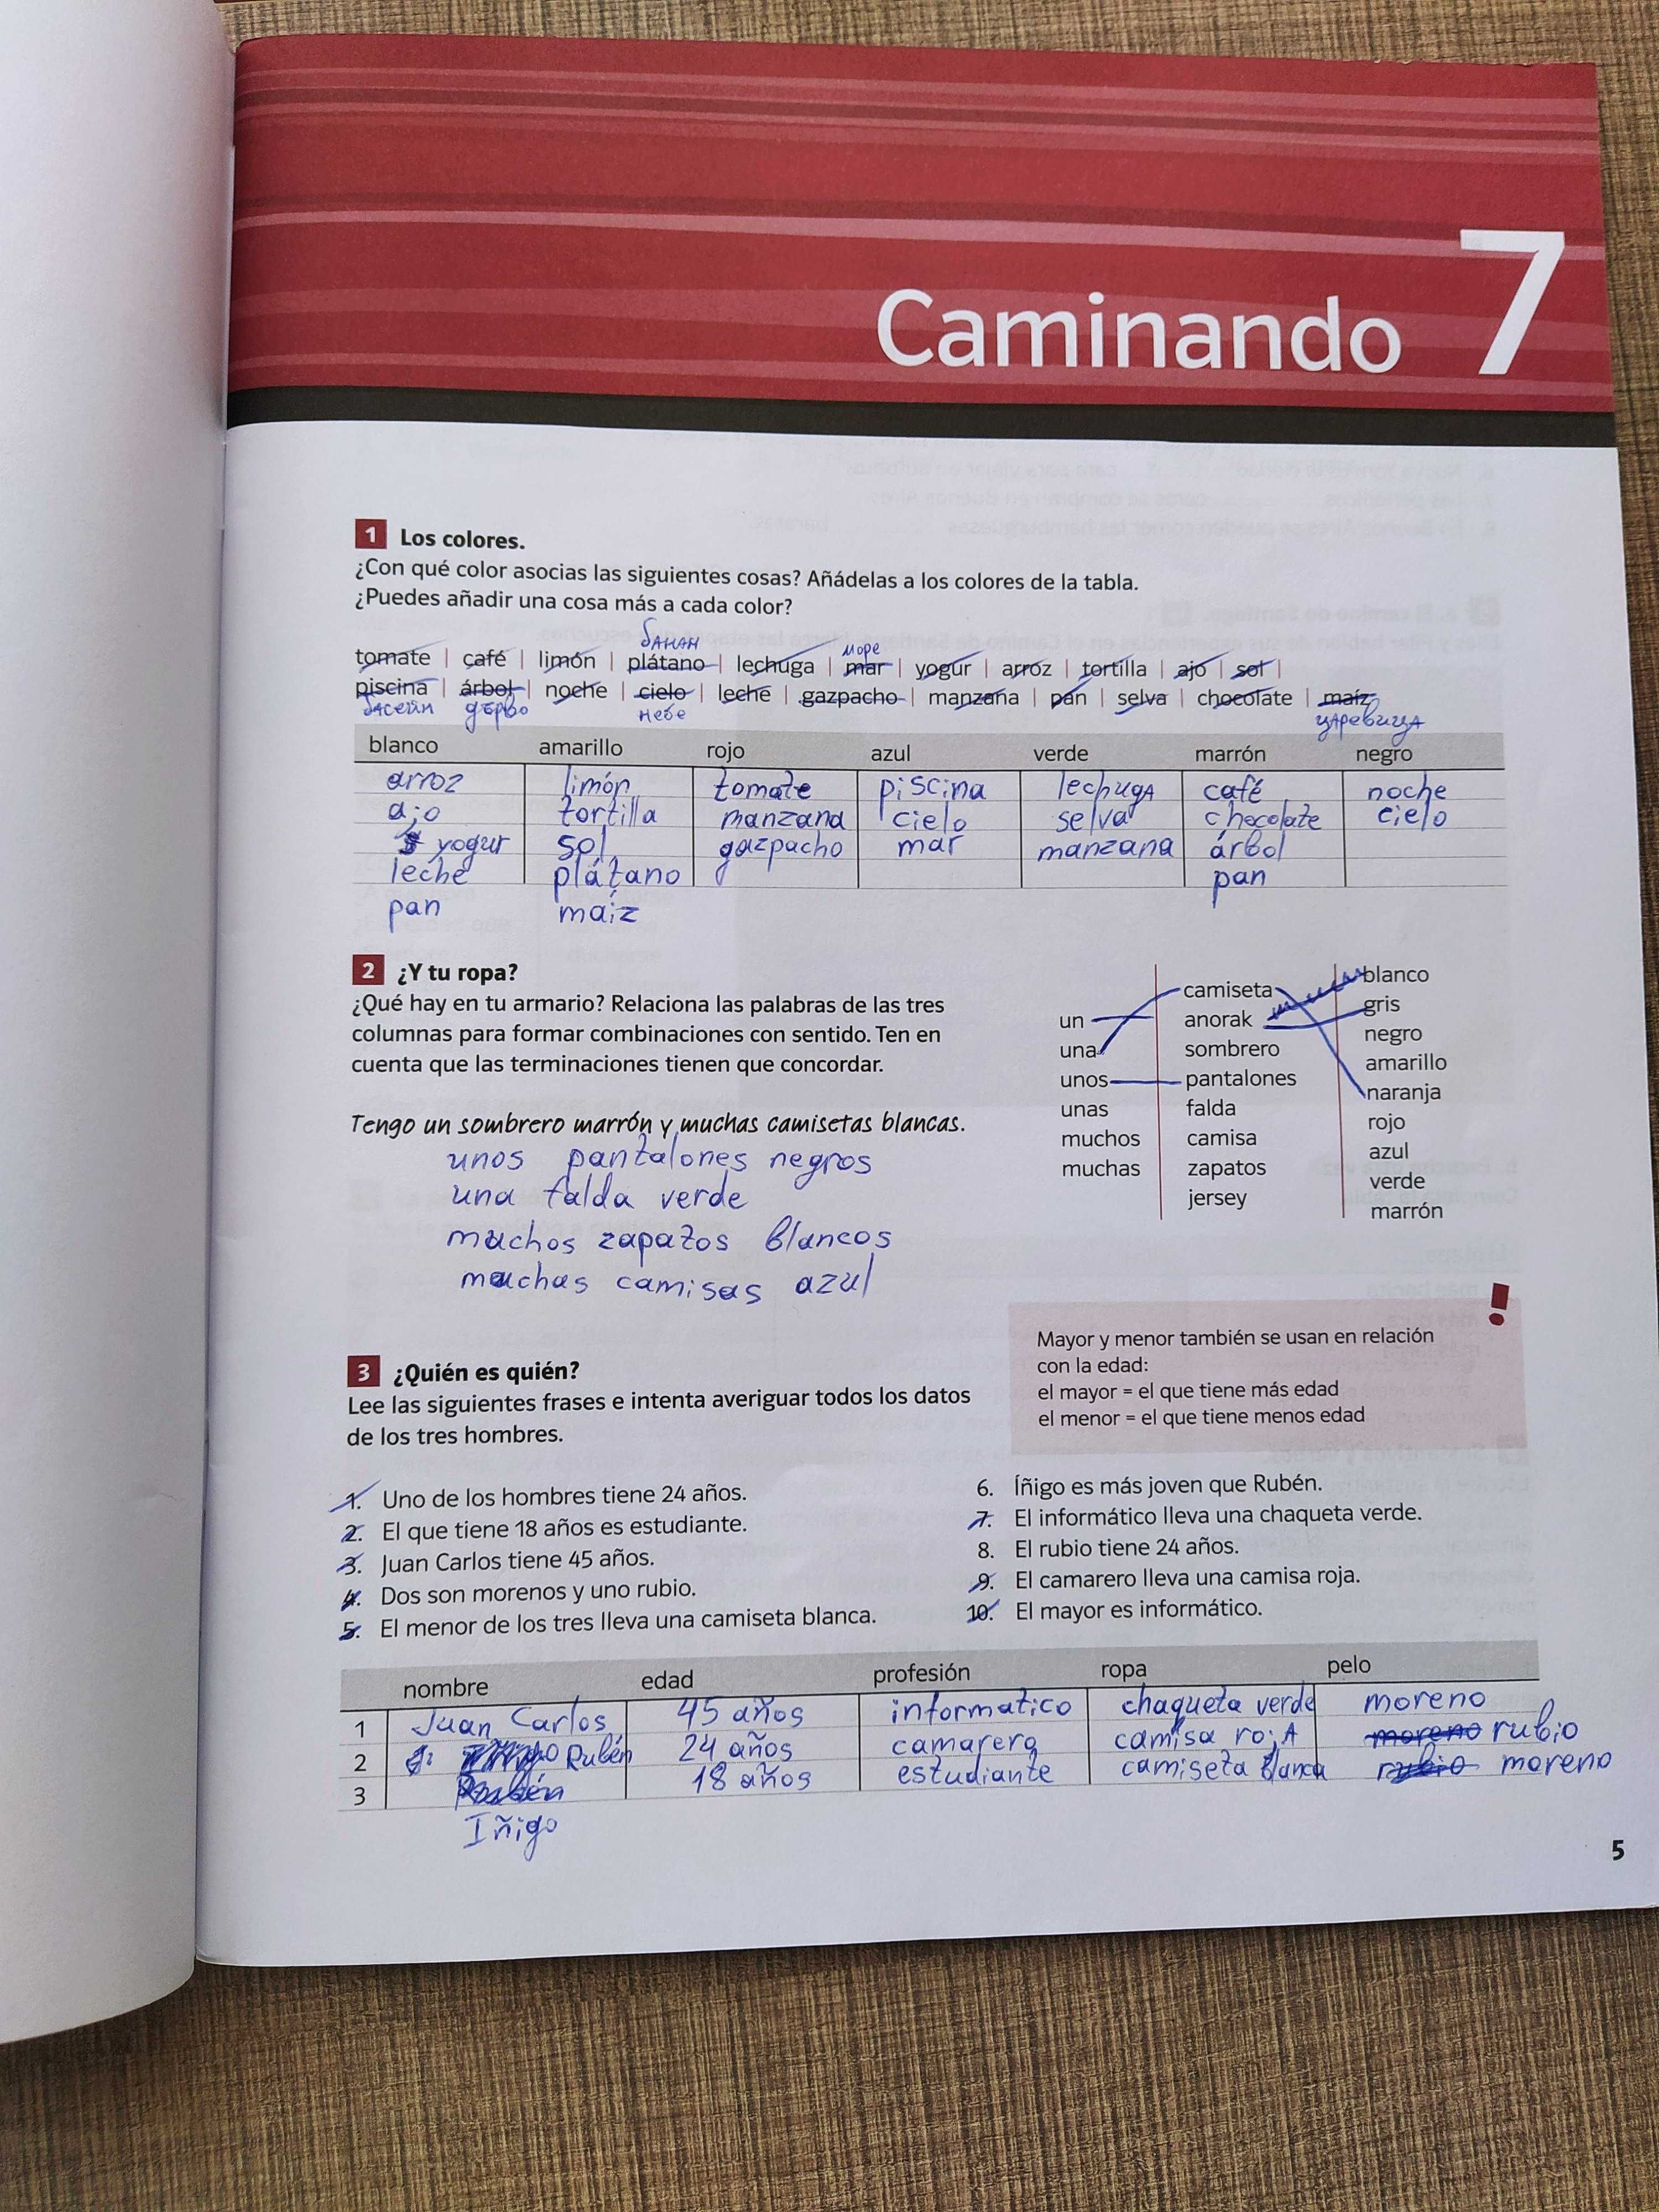 Caminando 7
1 Los colores.
¿Con qué color asocias las siguientes cosas? Añádelas a los colores de la tabla.
¿Puedes añadir una cosa más a cada color?
банан
море
tomate | café | limón | plátano | lechuga | mar | yogur | arroz | tortilla | ajo | sol |
piscina | árbol | noche | cielo | leche | gazpacho | manzana | pan | selva | chocolate | maíz
басейн дърво небе царевица
blanco amarillo rojo azul verde marrón negro
arroz limón tomate piscina lechuga café noche
ajo tortilla manzana cielo selva chocolate cielo
yogur sol gazpacho mar manzana árbol
leche plátano pan
pan maíz
2 ¿Y tu ropa?
¿Qué hay en tu armario? Relaciona las palabras de las tres
columnas para formar combinaciones con sentido. Ten en
cuenta que las terminaciones tienen que concordar.
Tengo un sombrero marrón y muchas camisetas blancas.
unos pantalones negros
una falda verde
muchos zapatos blancos
muchas camisas azul
un
una
unos
unas
muchos
muchas
camiseta
anorak
sombrero
pantalones
falda
camisa
zapatos
jersey
blanco
gris
negro
amarillo
naranja
rojo
azul
verde
marrón
!
Mayor y menor también se usan en relación
con la edad:
el mayor = el que tiene más edad
el menor = el que tiene menos edad
3 ¿Quién es quién?
Lee las siguientes frases e intenta averiguar todos los datos
de los tres hombres.
1. Uno de los hombres tiene 24 años.
2. El que tiene 18 años es estudiante.
3. Juan Carlos tiene 45 años.
4. Dos son morenos y uno rubio.
5. El menor de los tres lleva una camiseta blanca.
6. Íñigo es más joven que Rubén.
7. El informático lleva una chaqueta verde.
8. El rubio tiene 24 años.
9. El camarero lleva una camisa roja.
10. El mayor es informático.
nombre edad profesión ropa pelo
1 Juan Carlos 45 años informatico chaqueta verde moreno
2 Rubén 24 años camarero camisa roja moreno rubio
3 Rubén 18 años estudiante camiseta blanca rubio moreno
Iñigo
5